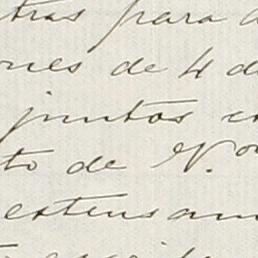 tras para
ones de 4 de
juntos
to de N.º
extensam